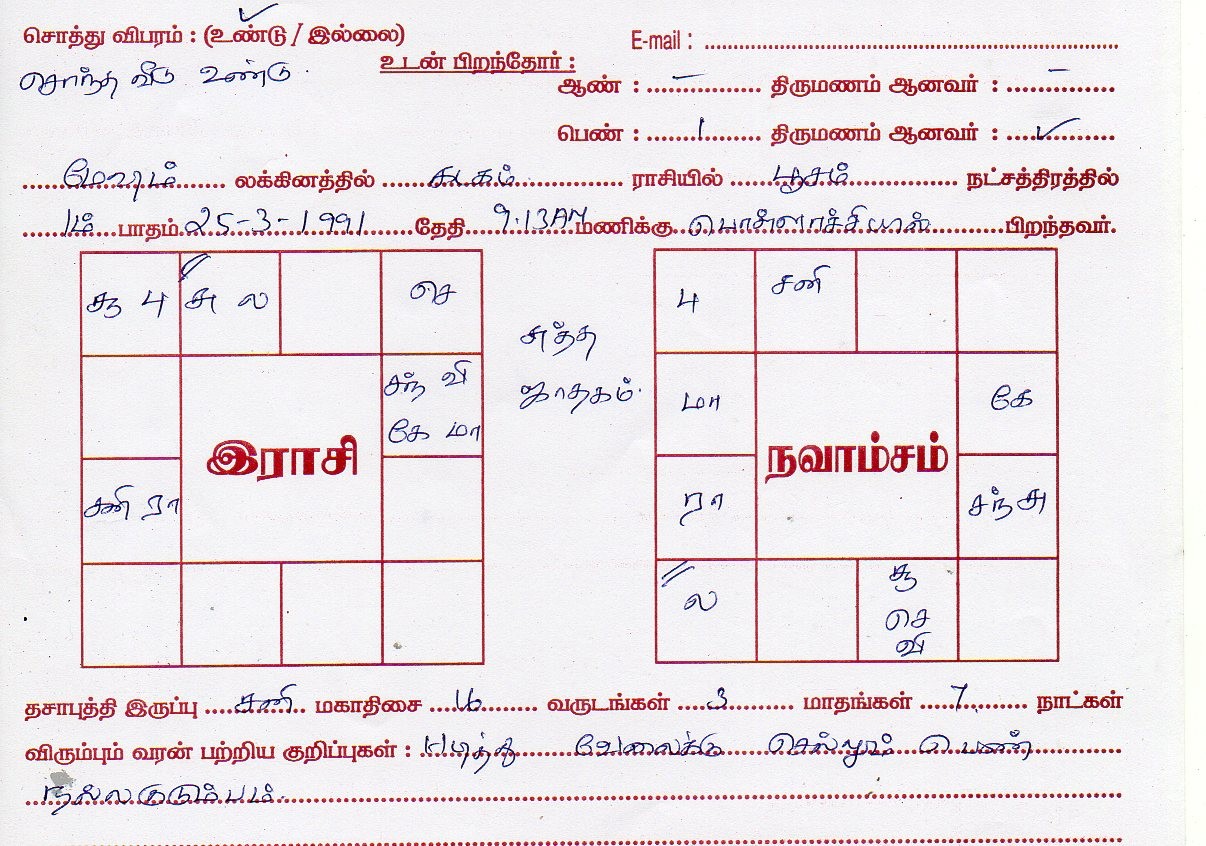 சொத்து விபரம் : (உண்டு / இல்லை)
E-mail :
சொந்த வீடு உண்டு.
உடன் பிறந்தோர் :
ஆண் : – திருமணம் ஆனவர் : –
பெண் : 1 திருமணம் ஆனவர் : ✓
மேஷம் லக்கினத்தில் கடகம் ராசியில் பூசம் நட்சத்திரத்தில்
1ம் பாதம் 25-3-1991 தேதி 9.13AM மணிக்கு பொள்ளாச்சியில் பிறந்தவர்.
சூ பு
சு ல
செ
சந் வி
கே மா
சனி ரா
இராசி
சுத்த
ஜாதகம்.
பு
சனி
மா
கே
நவாம்சம்
ரா
சந் சு
ல
சூ
செ
வி
தசாபுத்தி இருப்பு சனி மகாதிசை 16 வருடங்கள் 3 மாதங்கள் 7 நாட்கள்
விரும்பும் வரன் பற்றிய குறிப்புகள் : படித்த வேலைக்கு செல்லும் பெண்
நல்ல குடும்பம்.